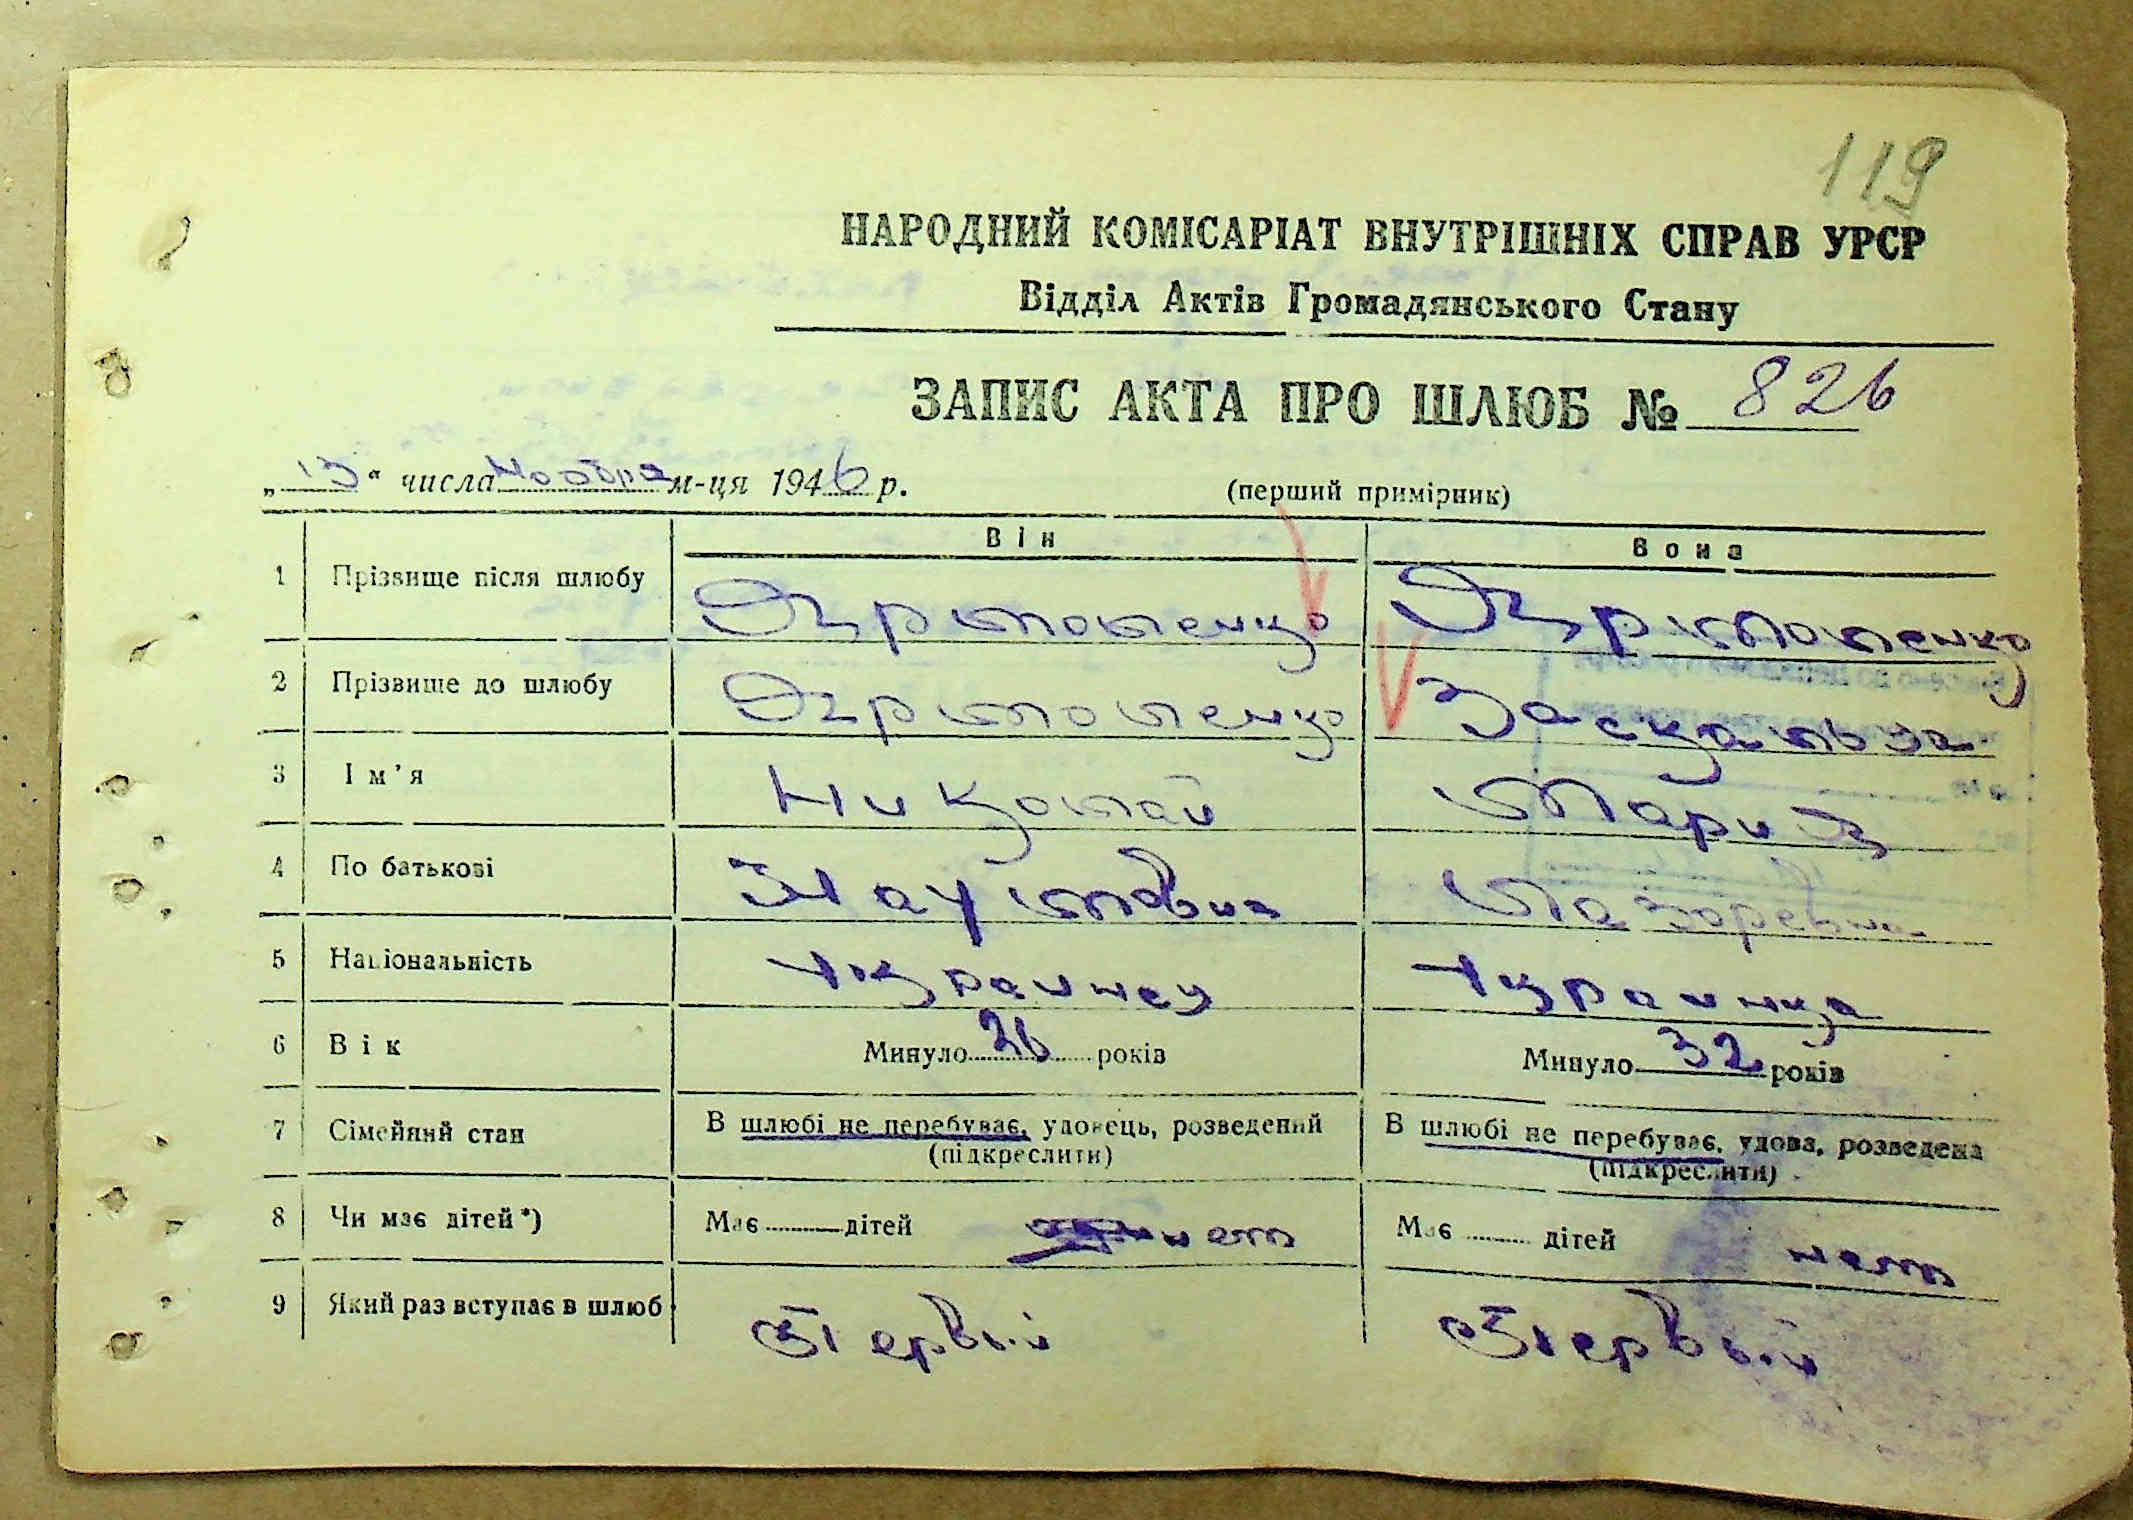 119
НАРОДНИЙ КОМІСАРІАТ ВНУТРІШНІХ СПРАВ УРСР
Відділ Актів Громадянського Стану
ЗАПИС АКТА ПРО ШЛЮБ № 826
„13“ числа ноября м-ця 1946 р. (перший примірник)
Він Вона
1 Прізвище після шлюбу Ярмоленко Ярмоленко
2 Прізвище до шлюбу Ярмоленко
3 Ім'я Николай Мария
4 По батькові Наумович Лазаревна
5 Національність Украинец Украинка
6 Вік Минуло 26 років Минуло 32 років
7 Сімейний стан В шлюбі не перебуває, удовець, розведений В шлюбі не перебуває, удова, розведена
(підкреслити) (підкреслити)
8 Чи має дітей*) Має дітей нет Має дітей нет
9 Який раз вступає в шлюб Первый Первый